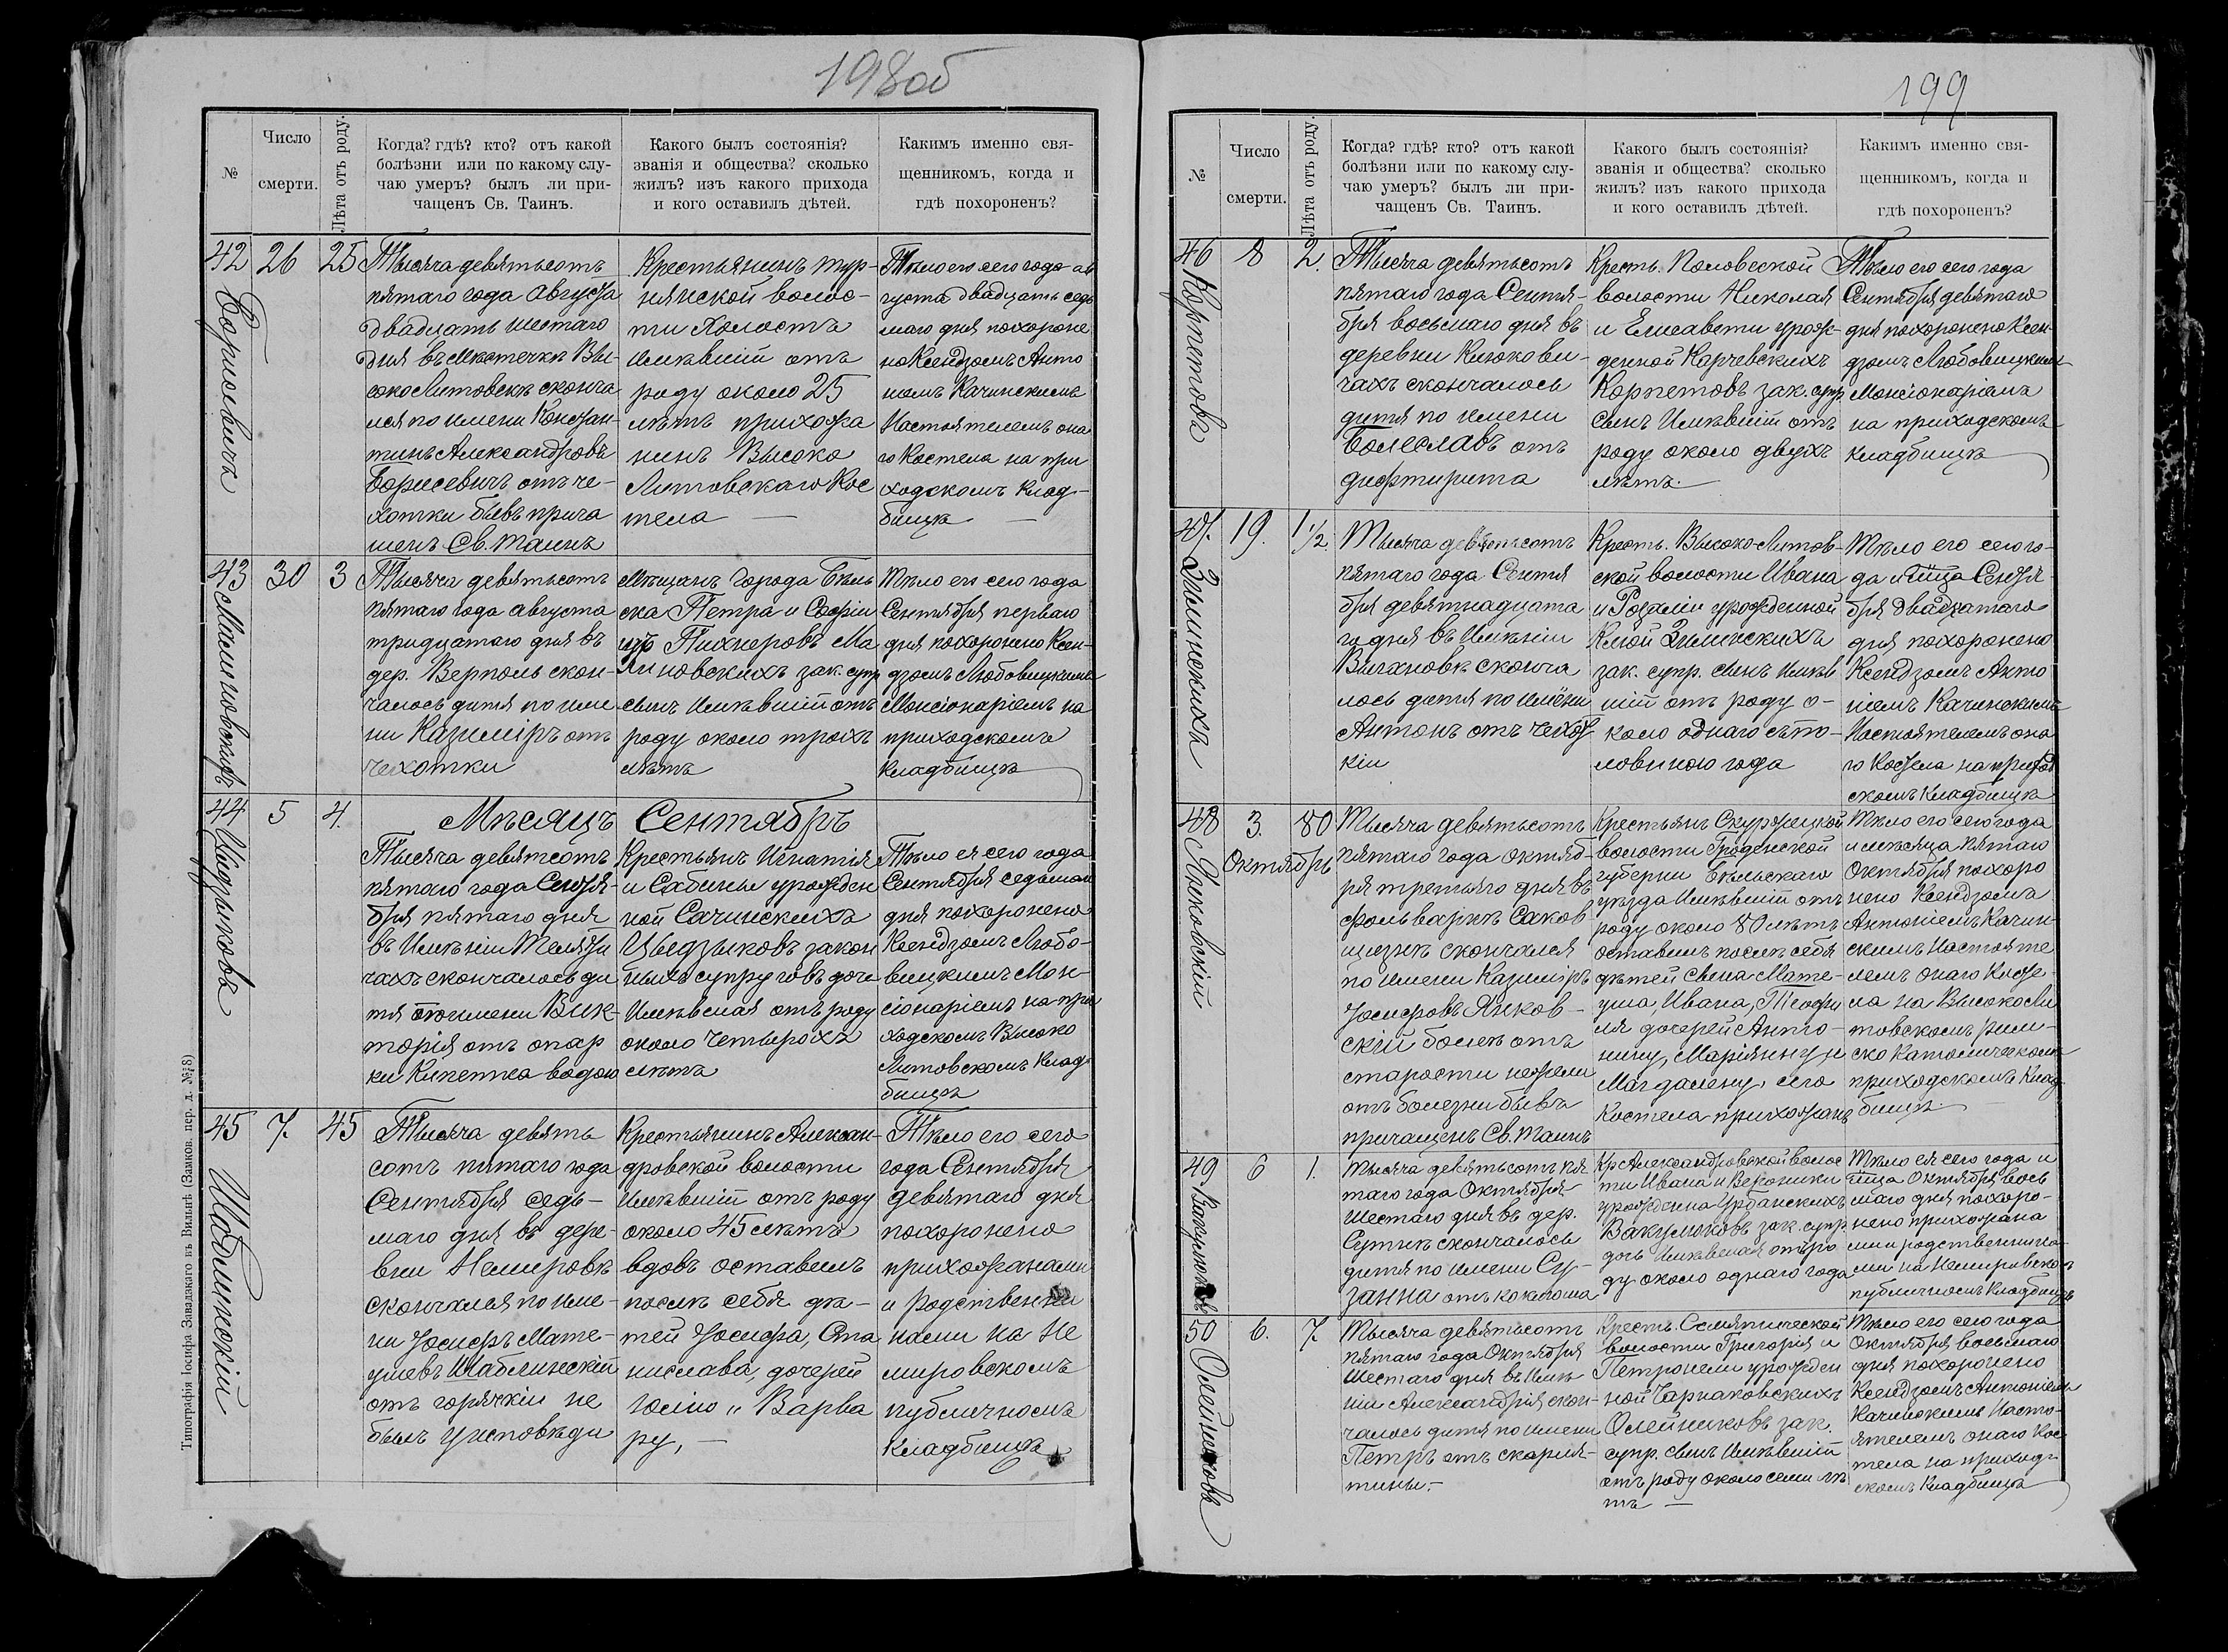 198об
№
Число
смерти.
Лѣта отъ роду.
Когда? гдѣ? кто? отъ какой
болѣзни или по какому слу-
чаю умеръ? былъ ли при-
чащенъ Св. Таинъ.
Какого былъ состоянія?
званія и общества? сколько
жилъ? изъ какого прихода
и кого оставилъ дѣтей.
Какимъ именно свя-
щенникомъ, когда и
гдѣ похороненъ?
42
Борисевичъ
26
25
Тысяча девятьсотъ
пятаго года Августа
двадцать шестаго
дня въ мѣстечкѣ Вы-
соколитовскѣ сконча
лся по имени Констан-
тинъ Александровъ
Борисевичъ отъ че-
хотки бывъ прича
щенъ Св. Таинъ
Крестьянинъ
волос-
ти Холостъ
имѣвшій отъ
роду около 25
лѣтъ прихожа
нинъ Высоко
Литовскаго Кос
тела —
Тѣло его сего года ав
густа двадцать седь
маго дня похороне
но Ксендзомъ Анто
ніемъ Качинскимъ
Настоятелемъ она
го Костела на при
ходскомъ клад-
бищѣ —
43
Малиновскихъ
30
3
Тысяча девятьсотъ
пятаго года августа
тридцатаго дня въ
дер. Верполь скон-
чалось дитя по име
ни Казиміръ отъ
чехотки
Мѣщанъ города Бѣль
ска Петра и Софіи
ур Пихнеровъ Ма
линовскихъ зак. супр
сынъ имѣвшій отъ
роду около троихъ
лѣтъ
Тѣло его сего года
Сентября перваго
дня похоронено Ксен-
дзомъ Любовицкимъ
Мансіонаріемъ на
приходскомъ
кладбищѣ
44
Цыдзыковъ
5
4.
Мѣсяцъ Сентябрь
Тысяча девятсотъ
пятаго года Сентя-
бря пятаго дня
въ Имѣніи Теляты
чахъ скончалось ди
тя по имени Вик-
торія отъ опар
ки Кипетка водою
Крестьянъ Игнатія
и Сабины урожден
ной Сачинскихъ
Цыдзыковъ закон
ныхъ супруговъ дочь
имѣвшая отъ роду
около четырохъ
лѣтъ
Тѣло ея сего года
Сентября седьмаго
дня похоронено
Ксендзомъ Любо-
вицкимъ Ман-
сіонаріемъ на при
ходскомъ Высоко
Литовскомъ клад-
бищѣ
45
Шаблинскій
7.
45
Тысяча девять
сотъ пятаго года
Сентября седь-
маго дня въ дере-
вни Немировѣ
скончался по име-
ни Іосифъ Мате-
ушевъ Шаблинскій
отъ горячкіи не
былъ у исповѣди
Крестьянинъ Алексан-
дровской волости
имѣвшій отъ роду
около 45 лѣтъ
вдовъ оставилъ
послѣ себя дѣ-
тей Іосифа, Ста
нислава, дочерей
Юлію и Варва
ру, —
Тѣло его сего
года Сентября
девятаго дня
похоронено
прихожанами
и родственни
ками на Не
мировскомъ
публичномъ
кладбищѣ
Типографія Іосифа Завадзкаго въ Вильнѣ (Замков. пер. д. №8)
199
№
Число
смерти.
Лѣта отъ роду.
Когда? гдѣ? кто? отъ какой
болѣзни или по какому слу-
чаю умеръ? былъ ли при-
чащенъ Св. Таинъ.
Какого былъ состоянія?
званія и общества? сколько
жилъ? изъ какого прихода
и кого оставилъ дѣтей.
Какимъ именно свя-
щенникомъ, когда и
гдѣ похороненъ?
46
Корпетовъ
8
2.
Тысяча девятьсотъ
пятаго года Сентя-
бря восьмаго дня въ
деревни Клюкови-
чахъ скончалось
дитя по имени
Болеславъ отъ
дифтирита
Кресть. Половсской
волости Николая
и Елисавети урож-
денной Карчевскихъ
Корпетовъ зак. супр
сынъ имѣвшій отъ
роду около двухъ
лѣтъ.
Тѣло его сего года
Сентября девятаго
дня похоронено Ксен-
дзомъ Любовицкимъ
Мансіонаріемъ
на приходскомъ
кладбищѣ
47.
Зилинскихъ
19.
1½.
Тысяча девятьсотъ
пятаго года Сентя
бря девятнадцата
го дня въ Имѣніи
Вычлновкѣ сконча
лось дитя по имени
Антонъ отъ чехот
кіи
Кресть. Высоко-Литов-
ской волости Ивана
и Розаліи урожденной
Кмой Зилинскихъ
зак. супр. сынъ имѣв
шій отъ роду о-
коло однаго съ по-
ловиною года
Тѣло его сего го-
да и м̃ца Сентя-
бря двадцатаго
дня похоронено
Ксендзомъ Анто
ніемъ Качинскимъ
Настоятелемъ она
го Костела на приход
скомъ кладбищѣ
48
Янковскій
3.
Октябрь
80
Тысяча девятьсотъ
пятаго года октяб-
ря третьяго дня въ
фольваркѣ Саков
щизнѣ скончался
по имени Казиміръ
Іосифовъ Янков-
скій болѣ отъ
старости нежели
отъ болезни бывъ
причащенъ Св. Таинъ
Крестьянъ Скуржецкой
волости Гродненской
губерни Бѣльскаго
уѣзда имѣвшій отъ
роду около 80 лѣтъ
оставилъ послѣ себя
дѣтей сына Мате-
уша, Ивана, Теофи
ля дочерей Анто-
нину, Маріянну и
Магдалену, сего
Костела прихожанъ
Тѣло его сего года
и мѣсяца пятаго
Октября похоро
нено Ксендзомъ
Антоніемъ Качин-
скимъ Настояте
лемъ онаго Косте
ла на Высоколи
товскомъ рим-
ско Католическомъ
приходскомъ клад-
бищѣ.
49
Вакулюковъ
6
1.
Тысяча девятьсотъ пя
таго года Октября
шестаго дня въ дер.
Сутнѣ скончалось
дитя по имени Су-
занна отъ коклюша
Кр Александровской волос
ти Ивана и Вероники
урожденна Урбанскихъ
Вакулюковъ зак. супр
дочь имѣвшая отъ ро
ду около однаго года
Тѣло ея сего года и
м̃ца Октября вось
маго дня похоро-
нено прихожана
ми и родственника
ми на Немировском
публичномъ кладбищѣ
50
Олейниковъ
6.
7.
Тысяча девятьсотъ
пятаго года Октября
шестаго дня въ Имѣ
ніи Александрія скон-
чалось дитя по имени
Петръ отъ скарля-
тины.-
Кресть. Семятической
волости Григорія и
Петронели урожден
ной Чарнаковскихъ
Олейниковъ зак.
супр. сынъ имѣвшій
отъ роду около семи лѣ
тъ —
Тѣло его сего года
Октября восьмаго
дня похоронено
Ксендзомъ Антоніемъ
Качинскимъ Насто-
ятелемъ онаго Кос
тела на приход-
скомъ кладбищѣ